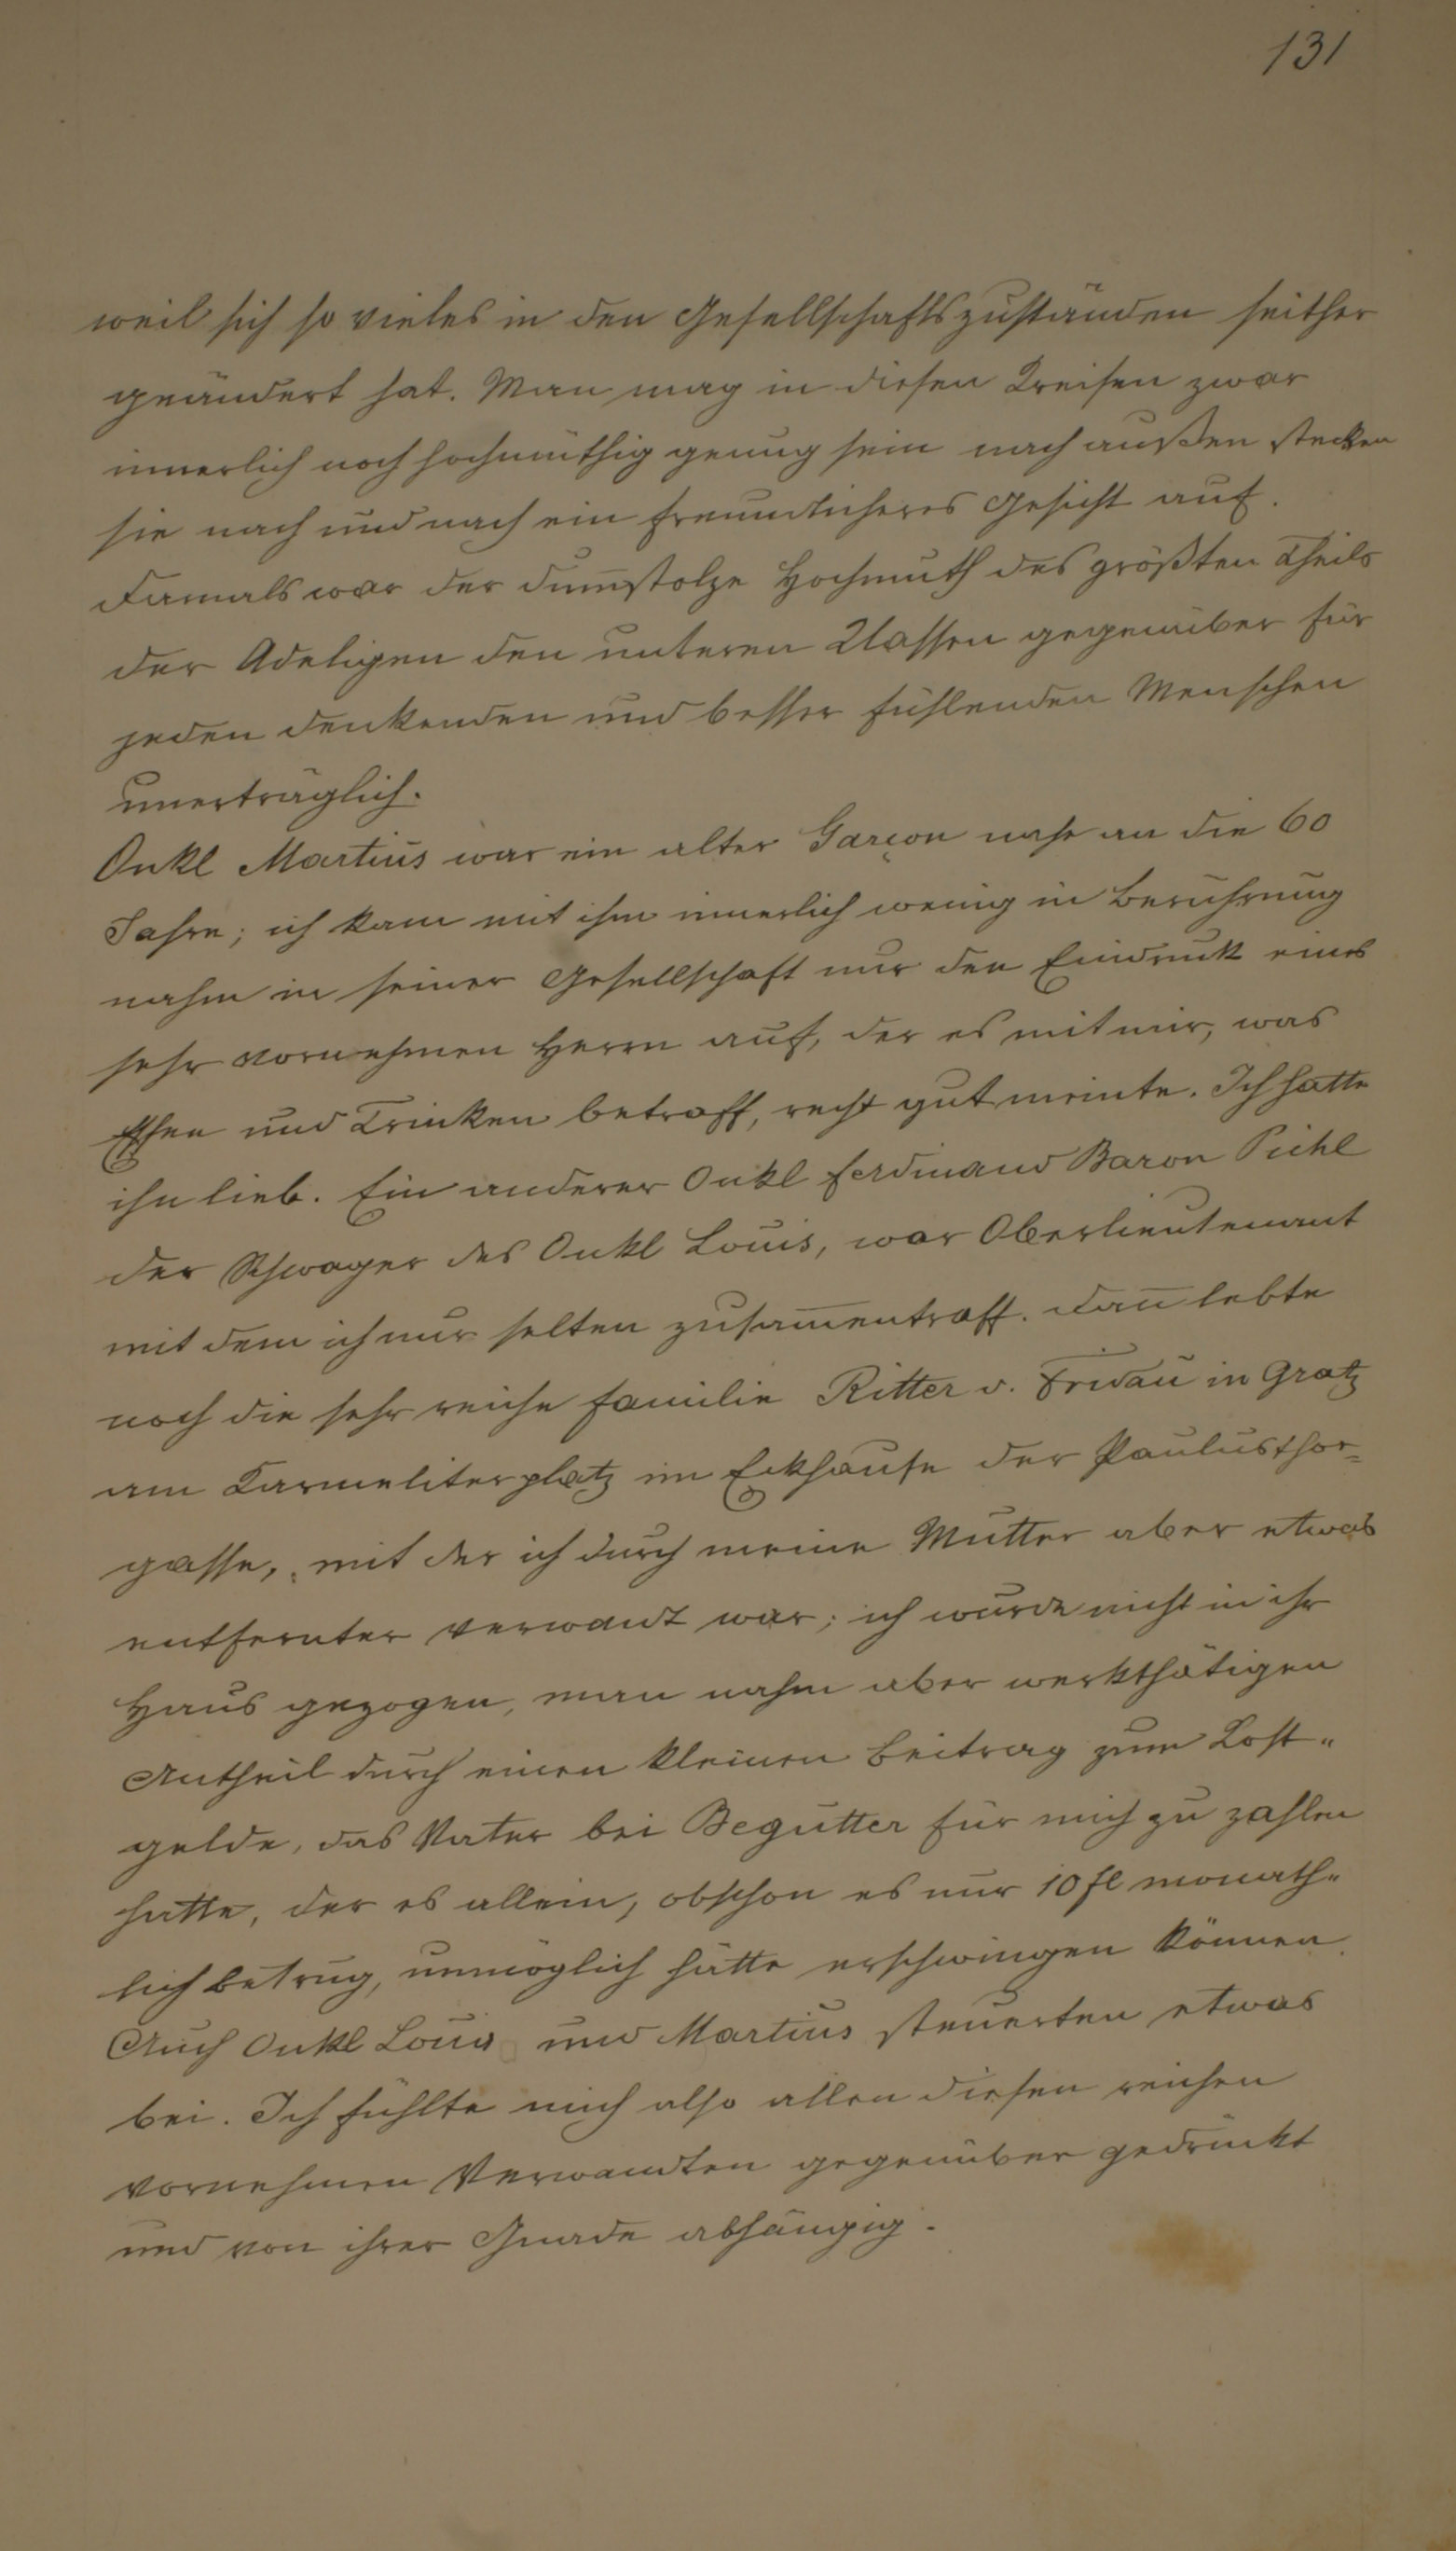 131
weil sich so vieles in den Gesellschaftszuständen seither
geändert hat. Man mag in diesen Kreisen zwar
innerlich noch hochmüthig genug sein nach außen stecken
sie nach und nach ein freundlicheres Gesicht auf.
Damals war der dum̅stolze Hochmuth des größten Theils
der Adeligen den unteren Klassen gegenüber für
jeden denkenden und besser fühlenden Menschen
unerträglich.
Onkl Martius war ein alter Garçon nahe an die 60
Jahre; ich kam mit ihm innerlich wenig in Berührung
nahm in seiner Gesellschaft nur den Eindruck eines
sehr vornehmen Herrn auf, der es mit mir, was
Essen und Trinken betraff, recht gut meinte. Ich hatte
ihn lieb. Ein anderer Onkl Ferdinand Baron Pichl
der Schwager des Onkl Louis, war Oberlieutenant
mit dem ich nur selten zusam̅entraff. Dan̅ lebte
noch die sehr reiche Familie Ritter v. Fridau in Gratz
am Karmeliterplatz im Eckhause der Paulusthor=
gasse, mit der ich durch meine Mutter aber etwas
entfernter verwandt war; ich wurde nicht in ihr
Haus gezogen, man nahm aber werkthätigen
Antheil durch einen kleinen Beitrag zum Kost„
gelde, das Vater bei Begutter für mich zu zahlen
hatte, der es allein, obschon es nur 10 fl monath„
lich betrug, unmöglich hätte erschwingen können.
Auch Onkl Louis und Martius steuerten etwas
bei. Ich fühlte mich also allen diesen reichen
vornehmen Verwandten gegenüber gedrückt
und von ihrer Gnade abhängig.